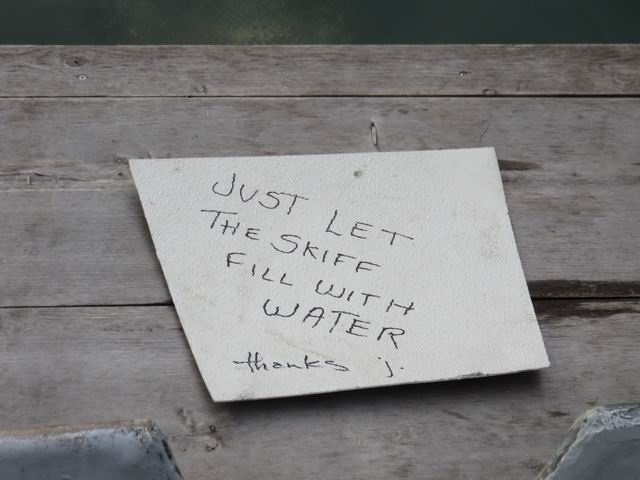 JUST LET
THE SKIFF
FILL WITH
WATER
thanks j.